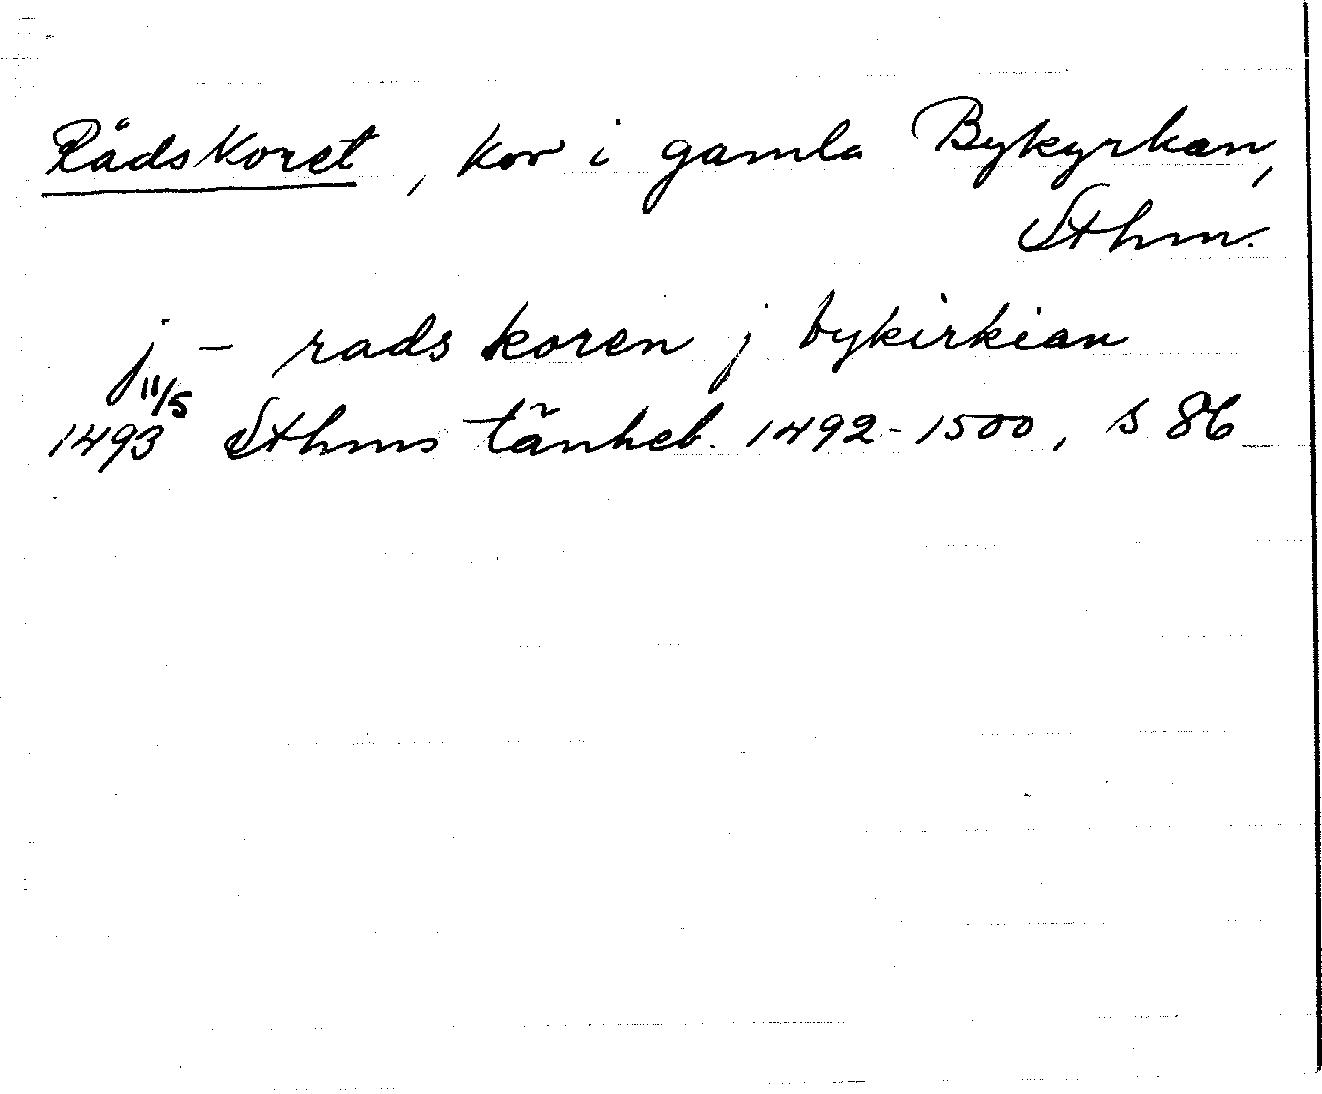 Rådskoret, kor i gamla Bykyrkan,
Sthm.
j - rads koren j bykirkian
11/5
1493 Sthms tänkeb. 1492-1500, s 86